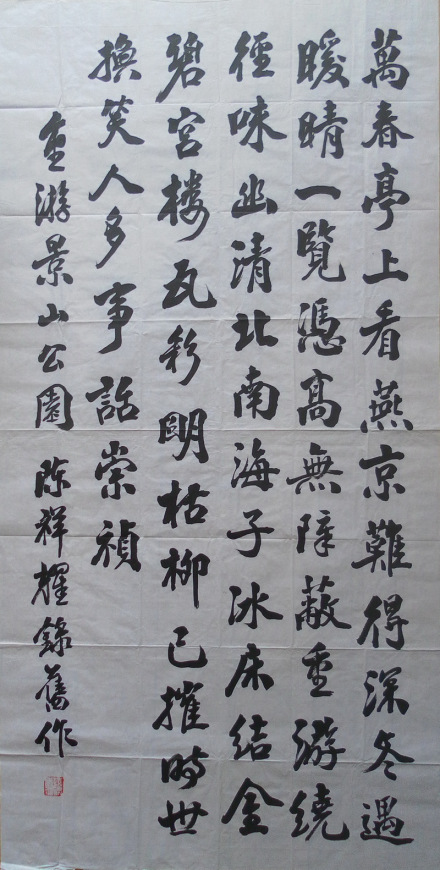 萬春亭上看燕京難得深冬遇
暖晴一覽憑高無障蔽重游繞
徑味幽清北南海子冰床結金
碧宮楼瓦彩明枯柳已摧時世
換笑人多事話崇禎
重游景山公園 陈祥耀錄舊作